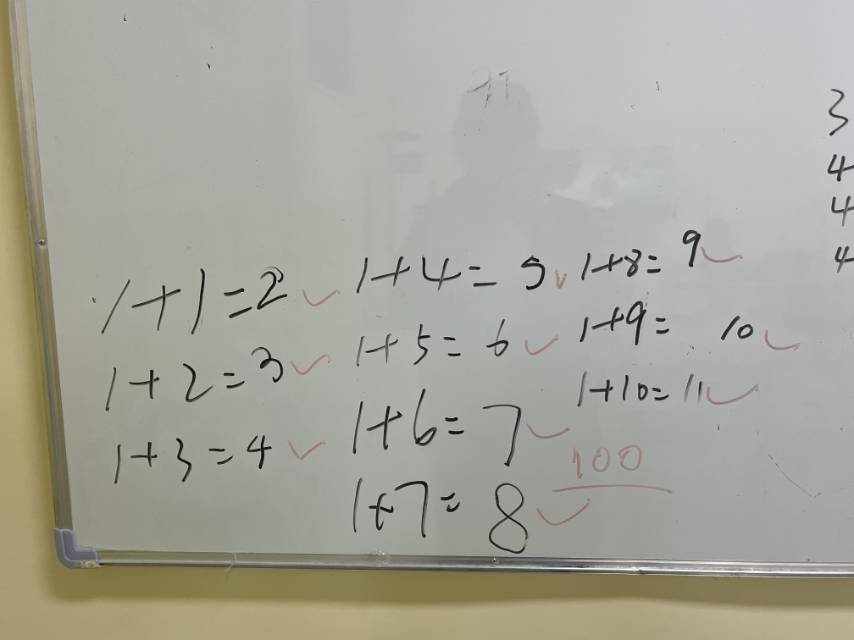 1+1=2
1+2=3
1+3=4
1+4=5
1+5=6
1+6=7
1+7=8
1+8=9
1+9=10
1+10=11
100
3
4
4
4